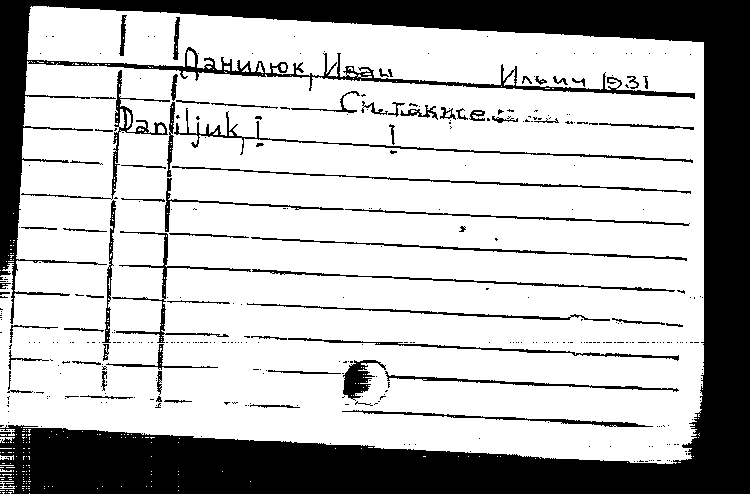 Данилюк, Иван Ильич 1931
См. также
Daniljuk, I I